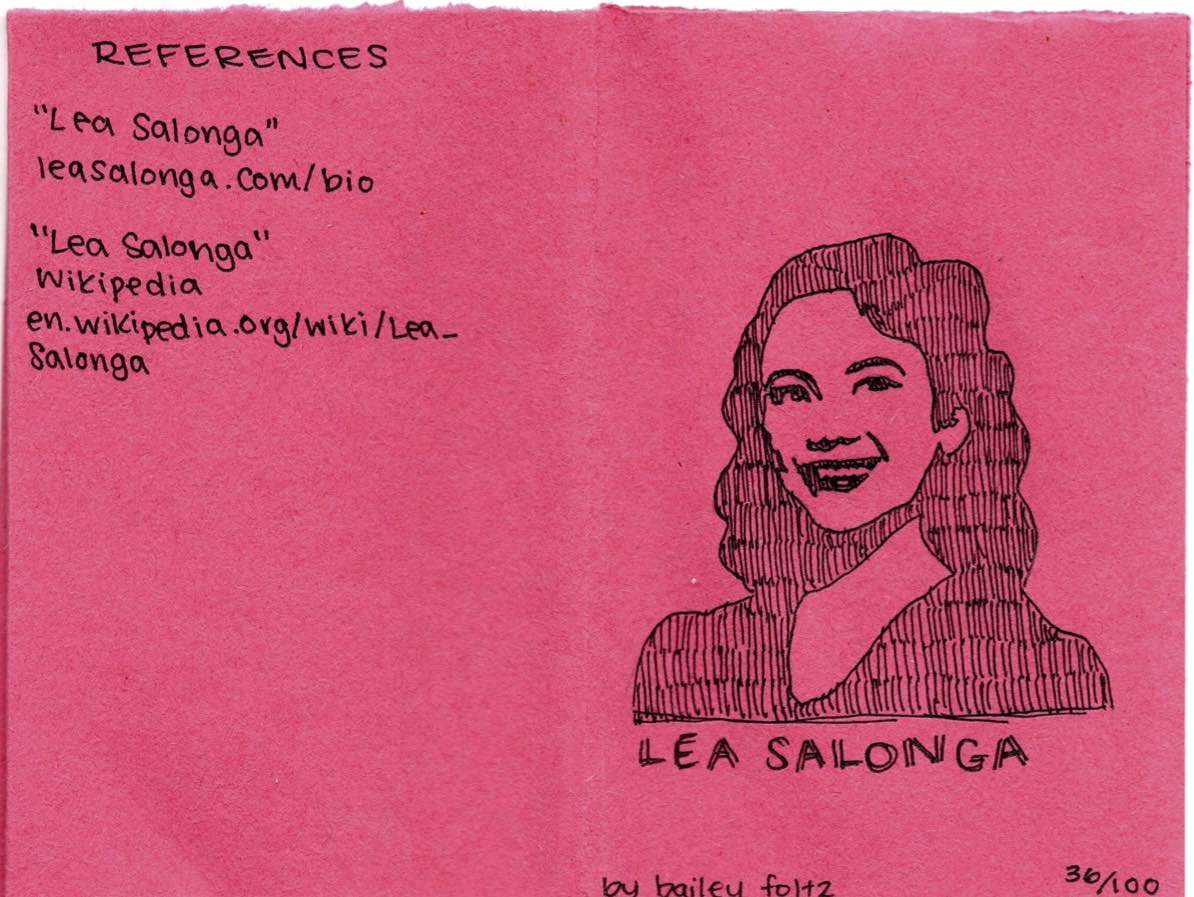 REFERENCES
"Lea Salonga"
leasalonga.com/bio
"Lea Salonga"
Wikipedia
en.wikipedia.org/wiki/Lea_
Salonga
LEA SALONGA
by bailey foltz
36/100